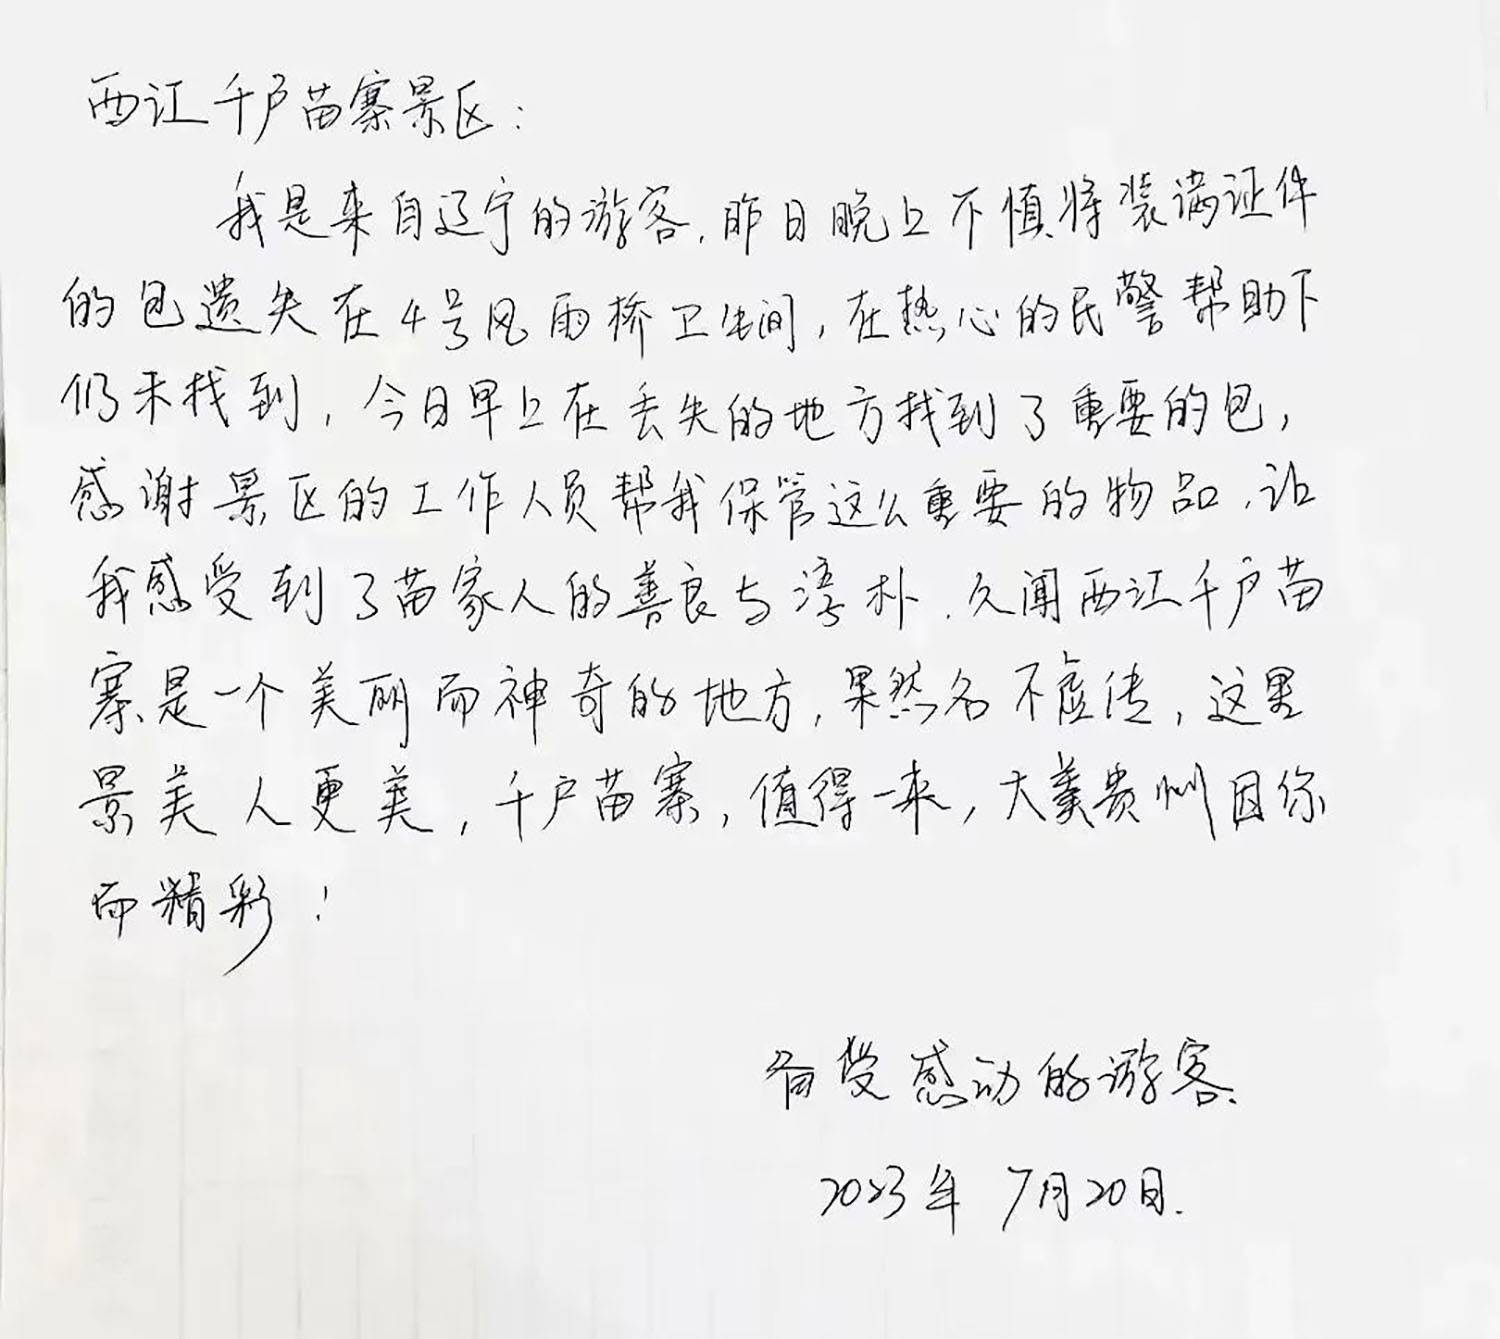 西江千户苗寨景区：
我是来自辽宁的游客，昨日晚上不慎将装满证件
的包遗失在4号风雨桥卫生间，在热心的民警帮助下
仍未找到，今日早上在丢失的地方找到了重要的包，
感谢景区的工作人员帮我保管这么重要的物品，让
我感受到了苗家人的善良与淳朴．久闻西江千户苗
寨是一个美丽而神奇的地方，果然名不虚传，这里
景美人更美，千户苗寨，值得一来，大美贵州因你
而精彩！
备受感动的游客．
2023年 7月20日．